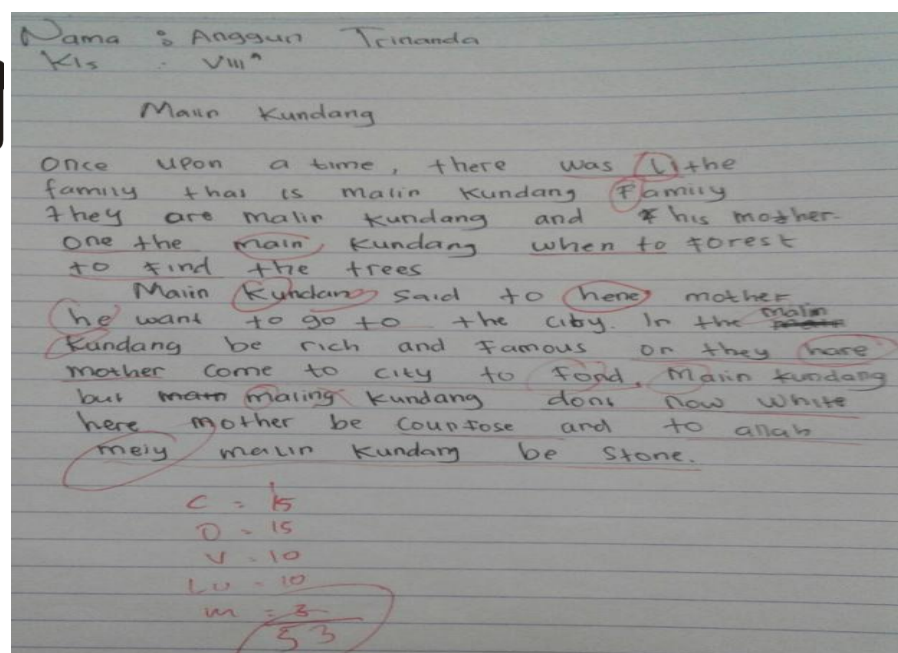 Nama : Anggun Trinanda
Kls : VIII A
Malin Kundang
Once upon a time, there was the
family that is malin kundang Family
they are malin kundang and his mother.
one the main kundang when to forest
to find the trees
Malin Kundang said to here mother
he want to go to the city. In the malin
kundang be rich and famous on they hare
mother come to city to fond, Malin kundang
but maling kundang dont now white
here mother be countose and to allah
meiy malin kundang be stone.
C = 15
O = 15
V = 10
LU = 10
m = 3
53